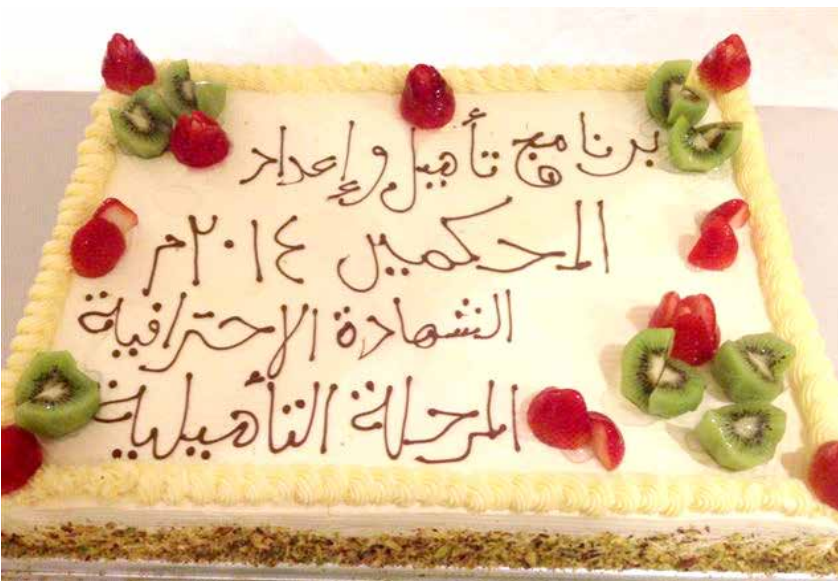 برنامج تأهيل وإعداد
المحكمين ٢٠١٤م
الشهادة الإحترافية
المرحلة التأهيلية